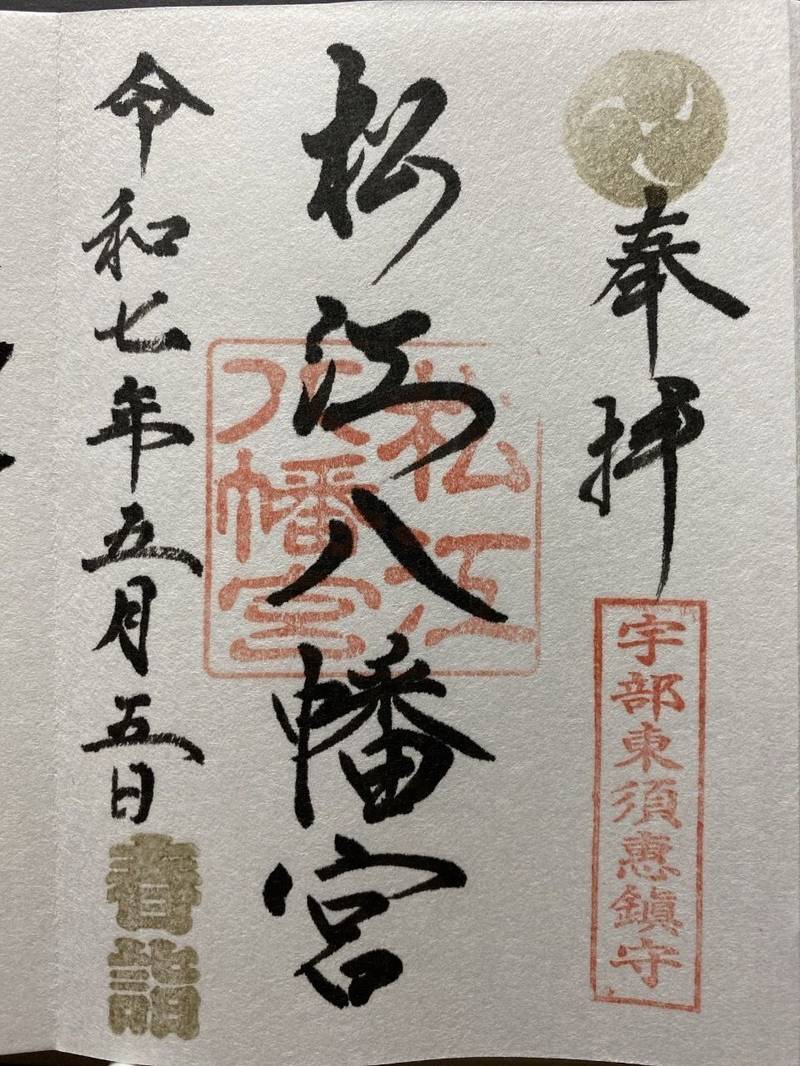 奉拝
宇部東須恵鎮守
松江八幡宮
松江八幡宮
令和七年五月五日
春詣